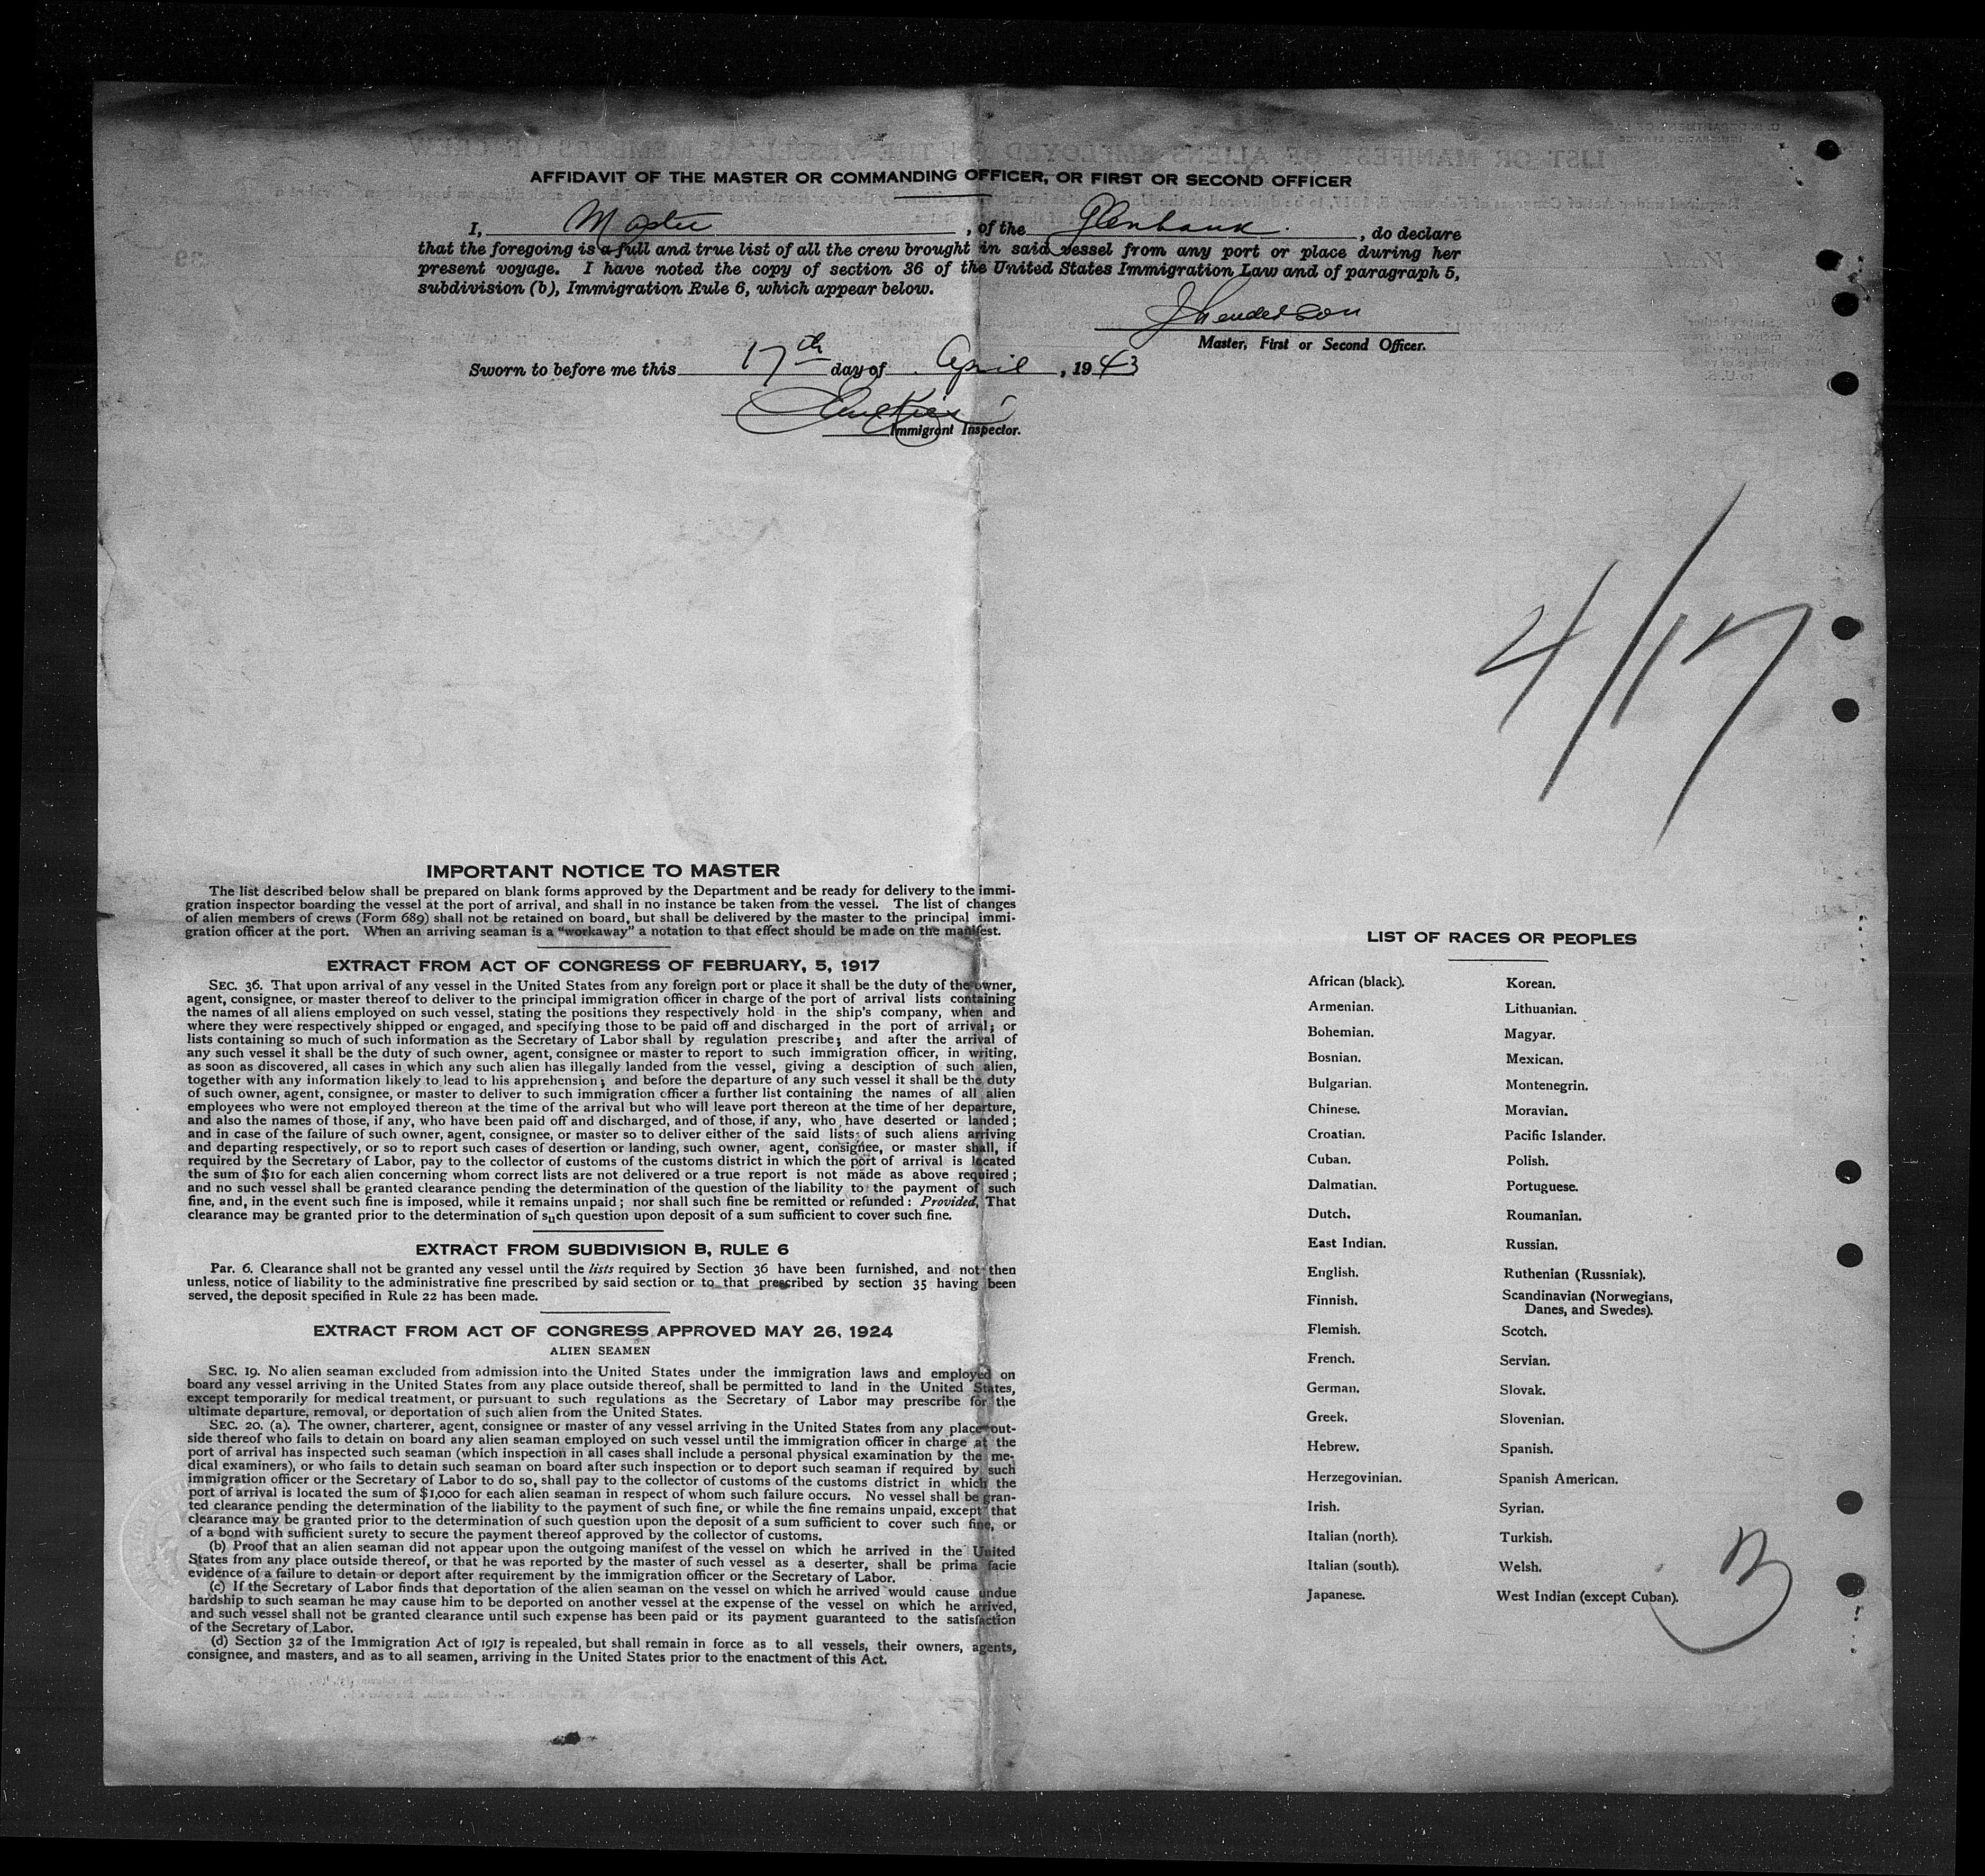 AFFIDAVIT OF THE MASTER OR COMMANDING OFFICER, OR FIRST OR SECOND OFFICER
I, Master, of the Glenbank., do declare
that the foregoing is a full and true list of all the crew brought in said vessel from any port or place during her
present voyage. I have noted the copy of section 36 of the United States Immigration Law and of paragraph 5,
subdivision (b), Immigration Rule 6, which appear below.
J Henderson
Master, First or Second Officer.
Sworn to before me this 17th day of April, 1943
Immigrant Inspector.
4/17
IMPORTANT NOTICE TO MASTER
The list described below shall be prepared on blank forms approved by the Department and be ready for delivery to the immi-
gration inspector boarding the vessel at the port of arrival, and shall in no instance be taken from the vessel. The list of changes
of alien members of crews (Form 689) shall not be retained on board, but shall be delivered by the master to the principal immi-
gration officer at the port. When an arriving seaman is a "workaway" a notation to that effect should be made on the manifest.
EXTRACT FROM ACT OF CONGRESS OF FEBRUARY, 5, 1917
SEC. 36. That upon arrival of any vessel in the United States from any foreign port or place it shall be the duty of the owner,
agent, consignee, or master thereof to deliver to the principal immigration officer in charge of the port of arrival lists containing
the names of all aliens employed on such vessel, stating the positions they respectively hold in the ship's company, when and
where they were respectively shipped or engaged, and specifying those to be paid off and discharged in the port of arrival; or
lists containing so much of such information as the Secretary of Labor shall by regulation prescribe; and after the arrival of
any such vessel it shall be the duty of such owner, agent, consignee or master to report to such immigration officer, in writing,
as soon as discovered, all cases in which any such alien has illegally landed from the vessel, giving a desciption of such alien,
together with any information likely to lead to his apprehension; and before the departure of any such vessel it shall be the duty
of such owner, agent, consignee, or master to deliver to such immigration officer a further list containing the names of all alien
employees who were not employed thereon at the time of the arrival but who will leave port thereon at the time of her departure,
and also the names of those, if any, who have been paid off and discharged, and of those, if any, who have deserted or landed;
and in case of the failure of such owner, agent, consignee, or master so to deliver either of the said lists of such aliens arriving
and departing respectively, or so to report such cases of desertion or landing, such owner, agent, consignee, or master shall, if
required by the Secretary of Labor, pay to the collector of customs of the customs district in which the port of arrival is located
the sum of $10 for each alien concerning whom correct lists are not delivered or a true report is not made as above required;
and no such vessel shall be granted clearance pending the determination of the question of the liability to the payment of such
fine, and, in the event such fine is imposed, while it remains unpaid; nor shall such fine be remitted or refunded: Provided, That
clearance may be granted prior to the determination of such question upon deposit of a sum sufficient to cover such fine.
EXTRACT FROM SUBDIVISION B, RULE 6
Par. 6. Clearance shall not be granted any vessel until the lists required by Section 36 have been furnished, and not then
unless, notice of liability to the administrative fine prescribed by said section or to that prescribed by section 35 having been
served, the deposit specified in Rule 22 has been made.
EXTRACT FROM ACT OF CONGRESS APPROVED MAY 26, 1924
ALIEN SEAMEN
SEC. 19. No alien seaman excluded from admission into the United States under the immigration laws and employed on
board any vessel arriving in the United States from any place outside thereof, shall be permitted to land in the United States,
except temporarily for medical treatment, or pursuant to such regulations as the Secretary of Labor may prescribe for the
ultimate departure, removal, or deportation of such alien from the United States.
SEC. 20. (a). The owner, charterer, agent, consignee or master of any vessel arriving in the United States from any place out-
side thereof who fails to detain on board any alien seaman employed on such vessel until the immigration officer in charge at the
port of arrival has inspected such seaman (which inspection in all cases shall include a personal physical examination by the me-
dical examiners), or who fails to detain such seaman on board after such inspection or to deport such seaman if required by such
immigration officer or the Secretary of Labor to do so, shall pay to the collector of customs of the customs district in which the
port of arrival is located the sum of $1,000 for each alien seaman in respect of whom such failure occurs. No vessel shall be gran-
ted clearance pending the determination of the liability to the payment of such fine, or while the fine remains unpaid, except that
clearance may be granted prior to the determination of such question upon the deposit of a sum sufficient to cover such fine, or
of a bond with sufficient surety to secure the payment thereof approved by the collector of customs.
(b) Proof that an alien seaman did not appear upon the outgoing manifest of the vessel on which he arrived in the United
States from any place outside thereof, or that he was reported by the master of such vessel as a deserter, shall be prima facie
evidence of a failure to detain or deport after requirement by the immigration officer or the Secretary of Labor.
(c) If the Secretary of Labor finds that deportation of the alien seaman on the vessel on which he arrived would cause undue
hardship to such seaman he may cause him to be deported on another vessel at the expense of the vessel on which he arrived,
and such vessel shall not be granted clearance until such expense has been paid or its payment guaranteed to the satisfaction
of the Secretary of Labor.
(d) Section 32 of the Immigration Act of 1917 is repealed, but shall remain in force as to all vessels, their owners, agents,
consignee, and masters, and as to all seamen, arriving in the United States prior to the enactment of this Act.
LIST OF RACES OR PEOPLES
African (black).
Armenian.
Bohemian.
Bosnian.
Bulgarian.
Chinese.
Croatian.
Cuban.
Dalmatian.
Dutch.
East Indian.
English.
Finnish.
Flemish.
French.
German.
Greek.
Hebrew.
Herzegovinian.
Irish.
Italian (north).
Italian (south).
Japanese.
Korean.
Lithuanian.
Magyar.
Mexican.
Montenegrin.
Moravian.
Pacific Islander.
Polish.
Portuguese.
Roumanian.
Russian.
Ruthenian (Russniak).
Scandinavian (Norwegians,
Danes, and Swedes).
Scotch.
Servian.
Slovak.
Slovenian.
Spanish.
Spanish American.
Syrian.
Turkish.
Welsh.
West Indian (except Cuban).